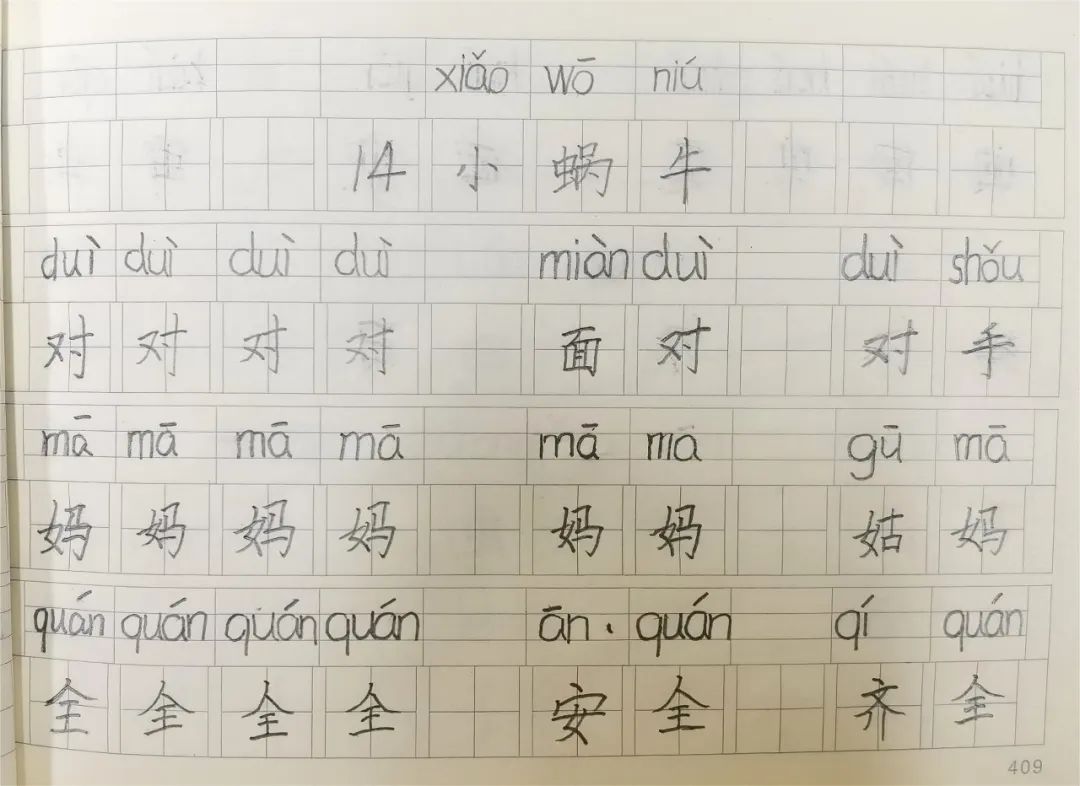 xiǎo wō niú
14 小 蜗 牛
duì duì duì duì miàn duì duì shǒu
对 对 对 对 面 对 对 手
mā mā mā mā mā ma gū mā
妈 妈 妈 妈 妈 妈 姑 妈
quán quán quán quán ān · quán qí quán
全 全 全 全 安 全 齐 全
409